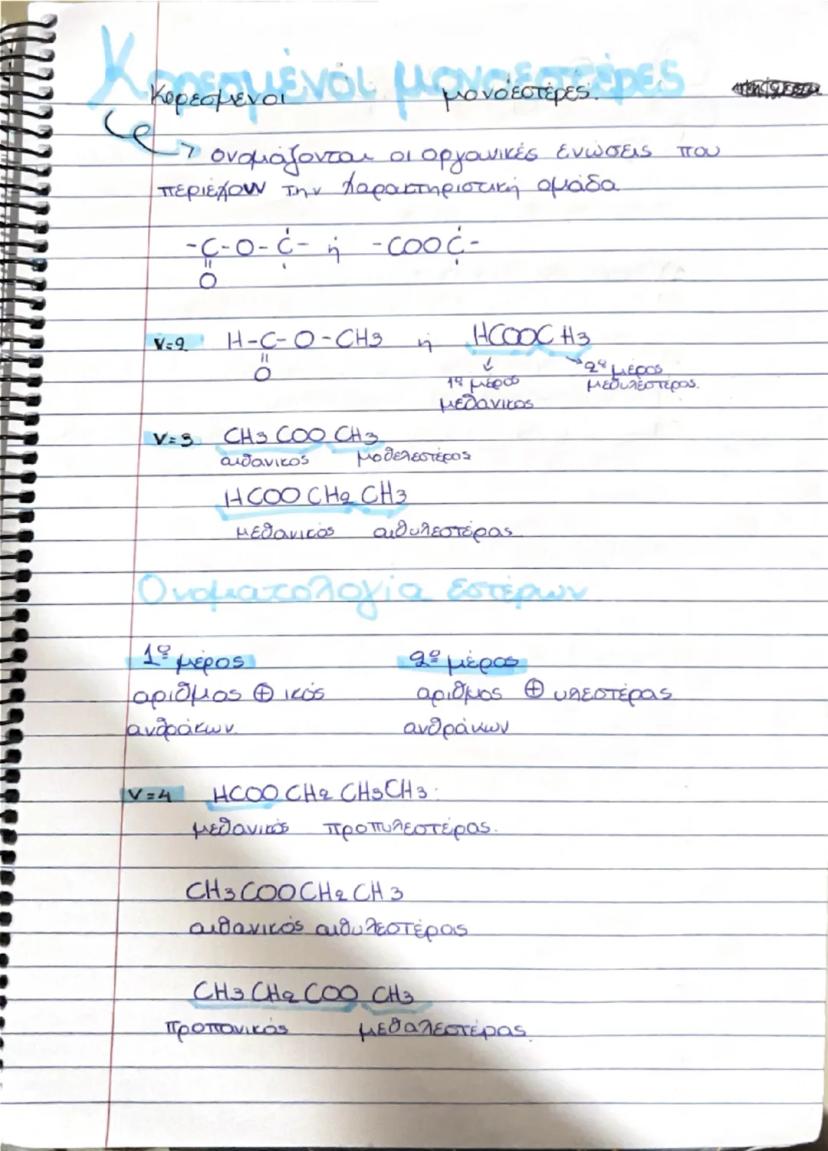 Κορεσμένοι μονοεστέρες
Κορεσμενοι μονοέστέρες.
→ ονομάζονται οι οργανικές ενώσεις που
περιέχουν την χαρακτηριστική ομάδα
-C-O-C- ή -COOC-
O
ν=2 H-C-O-CH3 ή HCOOCH3
O 1ο μέρος 2ο μέρος
μεθανικός μεθυλεστέρας.
ν=3 CH3COOCH3
αιθανικός μεθελεστέρας
HCOOCH2CH3
μεθανικός αιθυλεστέρας.
Ονοματολογία εστέρων
1ο μέρος 2ο μέρος
αριθμος ⊕ ικός αριθμος ⊕ υλεστέρας
ανθράκων. ανθράκων
ν=4 HCOOCH2CH3CH3.
μεθανικός προπυλεστέρας.
CH3COOCH2CH3
αιθανικός αιθυλεστέρας
CH3CH2COOCH3
προπανικός μεθαλεστέρας.